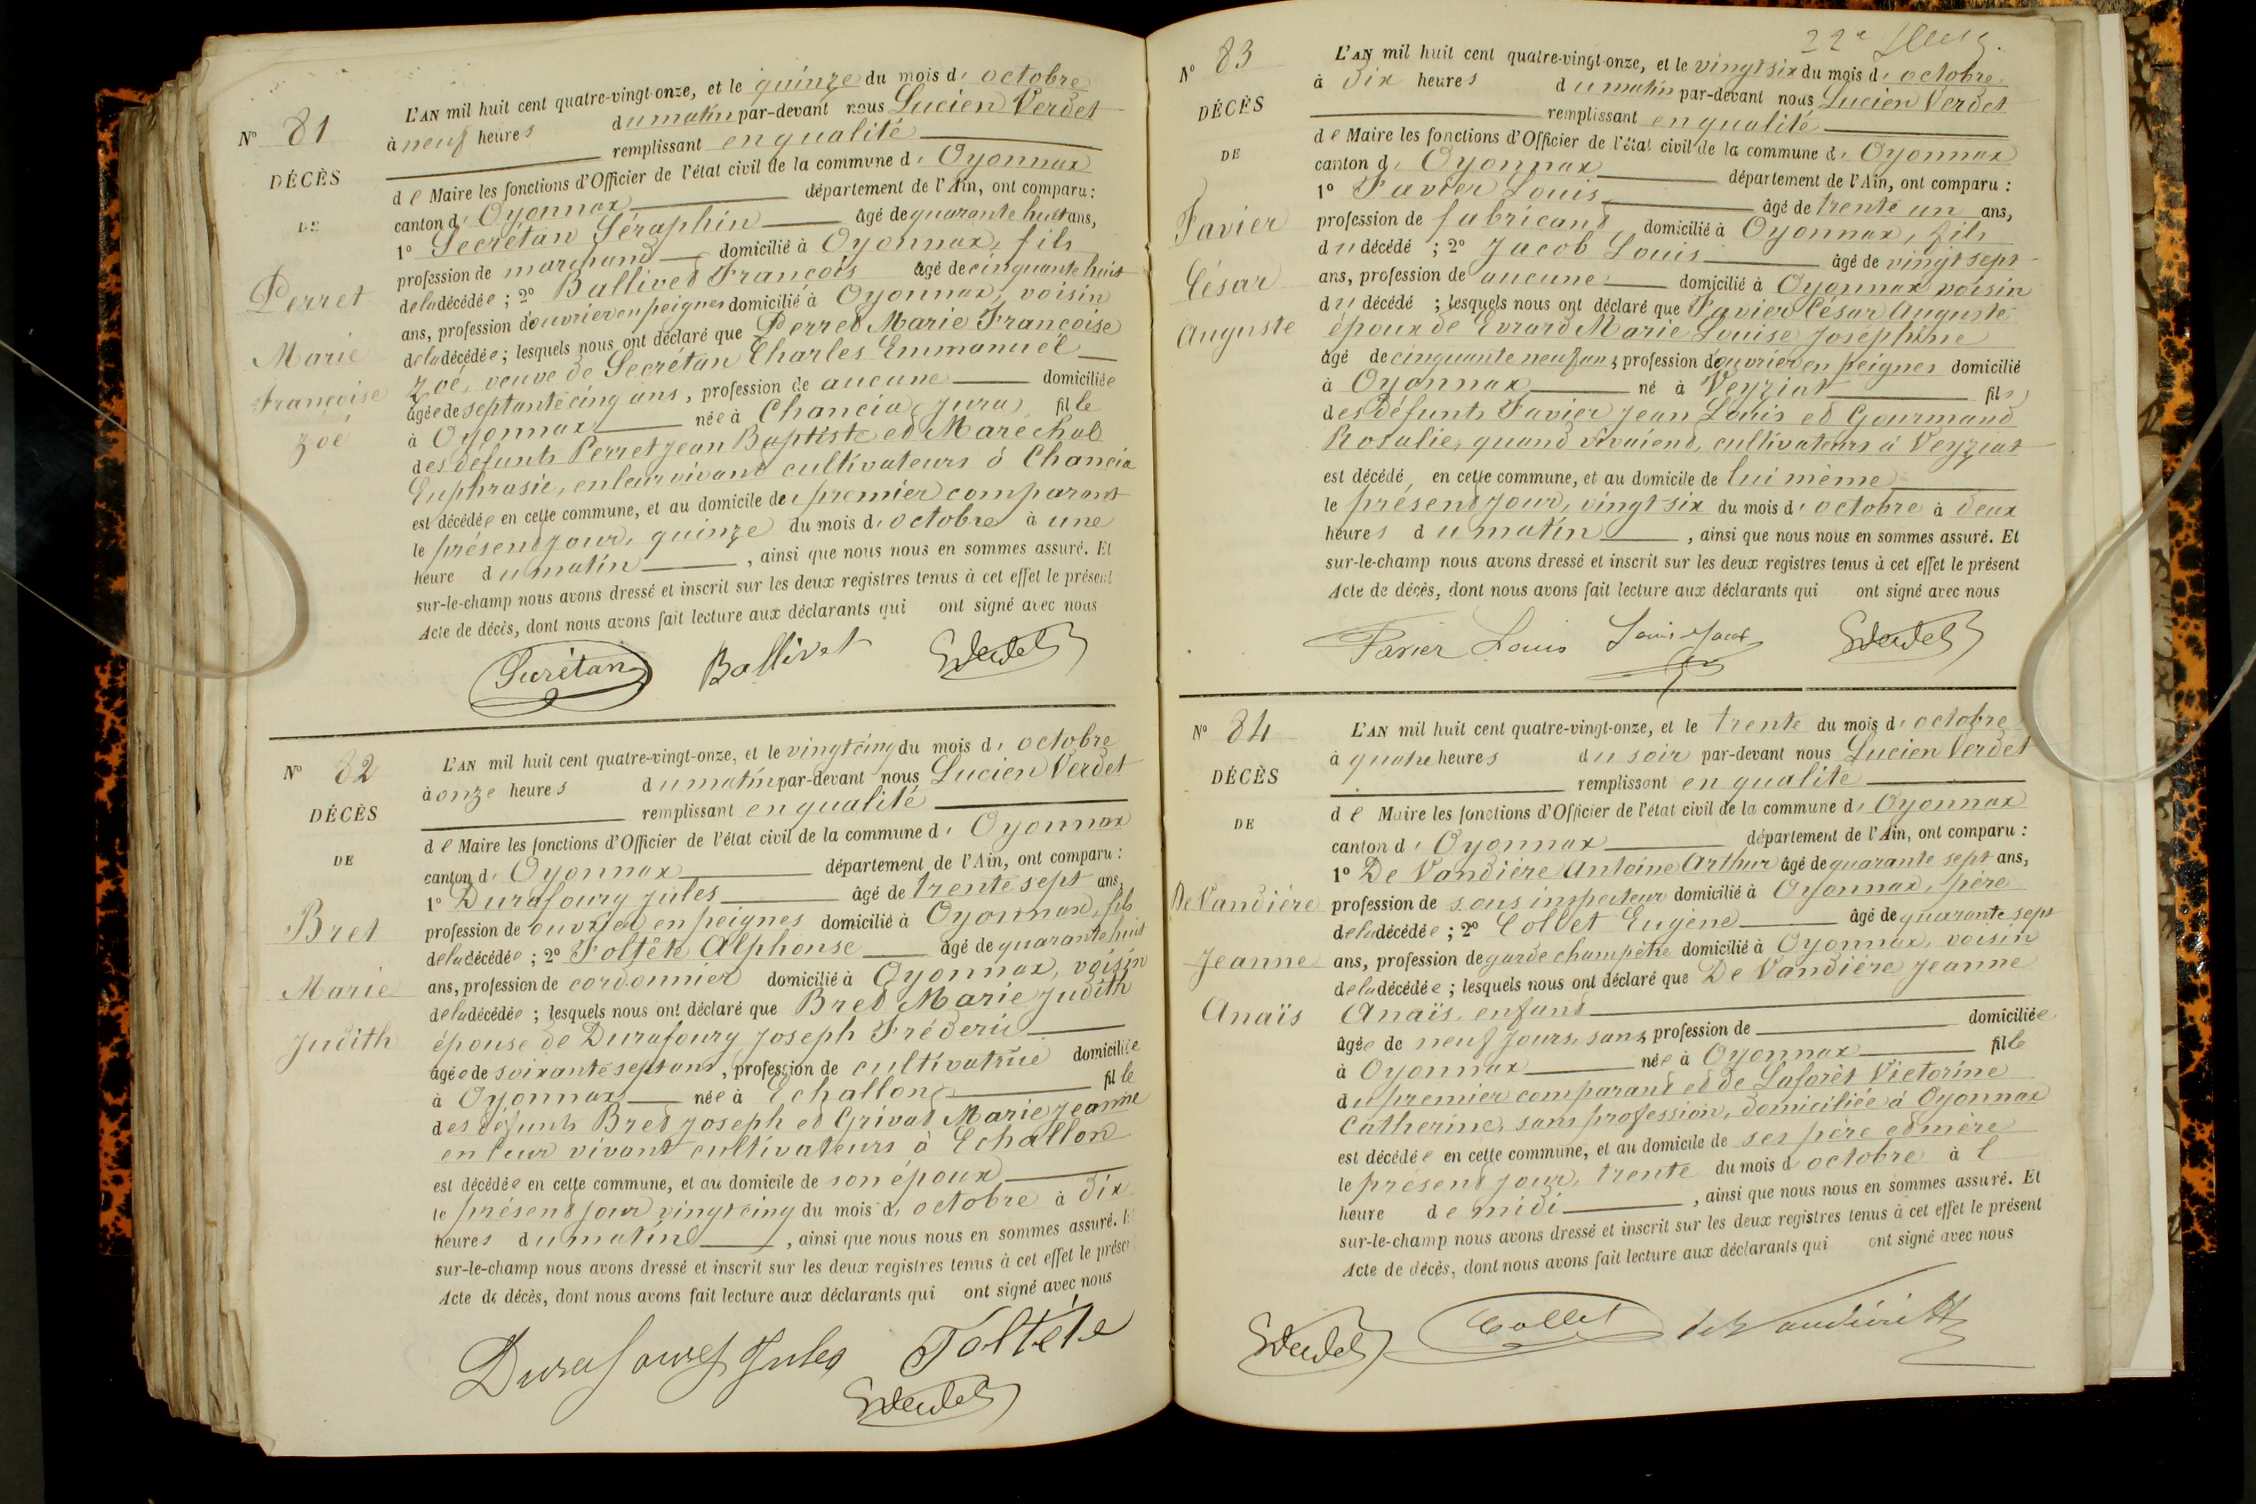 N° 81
DÉCÈS
DE
Perret
Marie
Françoise
Zoé
L'AN mil huit cent quatre-vingt-onze, et le quinze du mois d'octobre
à neuf heures du matin par-devant nous Lucien Verdet
remplissant en qualité
de Maire les fonctions d'Officier de l'état civil de la commune d'Oyonnax
canton d'Oyonnax département de l'Ain, ont comparu :
1° Secrétan Séraphin âgé de quarante huit ans,
profession de marchand domicilié à Oyonnax, fils
de la décédée ; 2° Ballivet François âgé de cinquante huit
ans, profession d'ouvrier en peignes domicilié à Oyonnax, voisin
de la décédée ; lesquels nous ont déclaré que Perret Marie Françoise
Zoé, veuve de Secrétan Charles Emmanuel
âgée de septante cinq ans, profession de aucune domiciliée
à Oyonnax née à Chancia (Jura) fille
des défunts Perret Jean Baptiste et Maréchal
Euphrasie, en leur vivant cultivateurs à Chancia
est décédée en cette commune, et au domicile de premier comparant
le présent jour, quinze du mois d'octobre à une
heure du matin, ainsi que nous nous en sommes assuré. Et
sur-le-champ nous avons dressé et inscrit sur les deux registres tenus à cet effet le présent
Acte de décès, dont nous avons fait lecture aux déclarants qui ont signé avec nous
Secrétan Ballivet Verdet
N° 82
DÉCÈS
DE
Bret
Marie
Judith
L'AN mil huit cent quatre-vingt-onze, et le vingt cinq du mois d'octobre
à onze heures du matin par-devant nous Lucien Verdet
remplissant en qualité
de Maire les fonctions d'Officier de l'état civil de la commune d'Oyonnax
canton d'Oyonnax département de l'Ain, ont comparu :
1° Durafourg Jules âgé de trente sept ans,
profession de ouvrier en peignes domicilié à Oyonnax, fils
de la décédée ; 2° Foltête Alphonse âgé de quarante huit
ans, profession de cordonnier domicilié à Oyonnax, voisin
de la décédée ; lesquels nous ont déclaré que Bret Marie Judith
épouse de Durafourg Joseph Fréderic
âgée de soixante sept ans, profession de cultivatrice domiciliée
à Oyonnax née à Echallon fille
des défunts Bret Joseph et Grivat Marie Jeanne
en leur vivant cultivateurs à Echallon
est décédée en cette commune, et au domicile de son époux
le présent jour vingt cinq du mois d'octobre à dix
heures du matin, ainsi que nous nous en sommes assuré. E
sur-le-champ nous avons dressé et inscrit sur les deux registres tenus à cet effet le prése
Acte de décès, dont nous avons fait lecture aux déclarants qui ont signé avec nous
Durafourg Jules Foltête
Verdet
22e
N° 83
DÉCÈS
DE
Favier
César
Auguste
L'AN mil huit cent quatre-vingt-onze, et le vingt six du mois d'octobre
à dix heures du matin par-devant nous Lucien Verdet
remplissant en qualité
de Maire les fonctions d'Officier de l'état civil de la commune d'Oyonnax
canton d'Oyonnax département de l'Ain, ont comparu :
1° Favier Louis âgé de trente un ans,
profession de fabricant domicilié à Oyonnax, fils
du décédé ; 2° Jacob Louis âgé de vingt sept
ans, profession de aucune domicilié à Oyonnax voisin
du décédé ; lesquels nous ont déclaré que Favier César Auguste
époux de Evrard Marie Louise Joséphine
âgé de cinquante neuf ans, profession d'ouvrier en peignes domicilié
à Oyonnax né à Veyziat fils
des défunts Favier Jean Louis et Gourmand
Rosalie, quand vivaient, cultivateurs à Veyziat
est décédé en cette commune, et au domicile de lui même
le présent jour, vingt six du mois d'octobre à deux
heures du matin, ainsi que nous nous en sommes assuré. Et
sur-le-champ nous avons dressé et inscrit sur les deux registres tenus à cet effet le présent
Acte de décès, dont nous avons fait lecture aux déclarants qui ont signé avec nous
Favier Louis Louis Jacob Verdet
N° 84
DÉCÈS
DE
De Vandière
Jeanne
Anaïs
L'AN mil huit cent quatre-vingt-onze, et le trente du mois d'octobre
à quatre heures du soir par-devant nous Lucien Verdet
remplissant en qualité
de Maire les fonctions d'Officier de l'état civil de la commune d'Oyonnax
canton d'Oyonnax département de l'Ain, ont comparu :
1° De Vandière Antoine Arthur âgé de quarante sept ans,
profession de sous inspecteur domicilié à Oyonnax, père
de la décédée ; 2° Collet Eugène âgé de quarante sept
ans, profession de garde champêtre domicilié à Oyonnax, voisin
de la décédée ; lesquels nous ont déclaré que De Vandière Jeanne
Anaïs, enfant
âgée de neuf jours, sans profession de domiciliée
à Oyonnax née à Oyonnax fille
du premier comparant et de Laforêt Victorine
Catherine, sans profession, domiciliée à Oyonnax
est décédée en cette commune, et au domicile de ses père et mère
le présent jour, trente du mois d'octobre à l
heure de midi, ainsi que nous nous en sommes assuré. Et
sur-le-champ nous avons dressé et inscrit sur les deux registres tenus à cet effet le présent
Acte de décès, dont nous avons fait lecture aux déclarants qui ont signé avec nous
Verdet Collet de Vandière